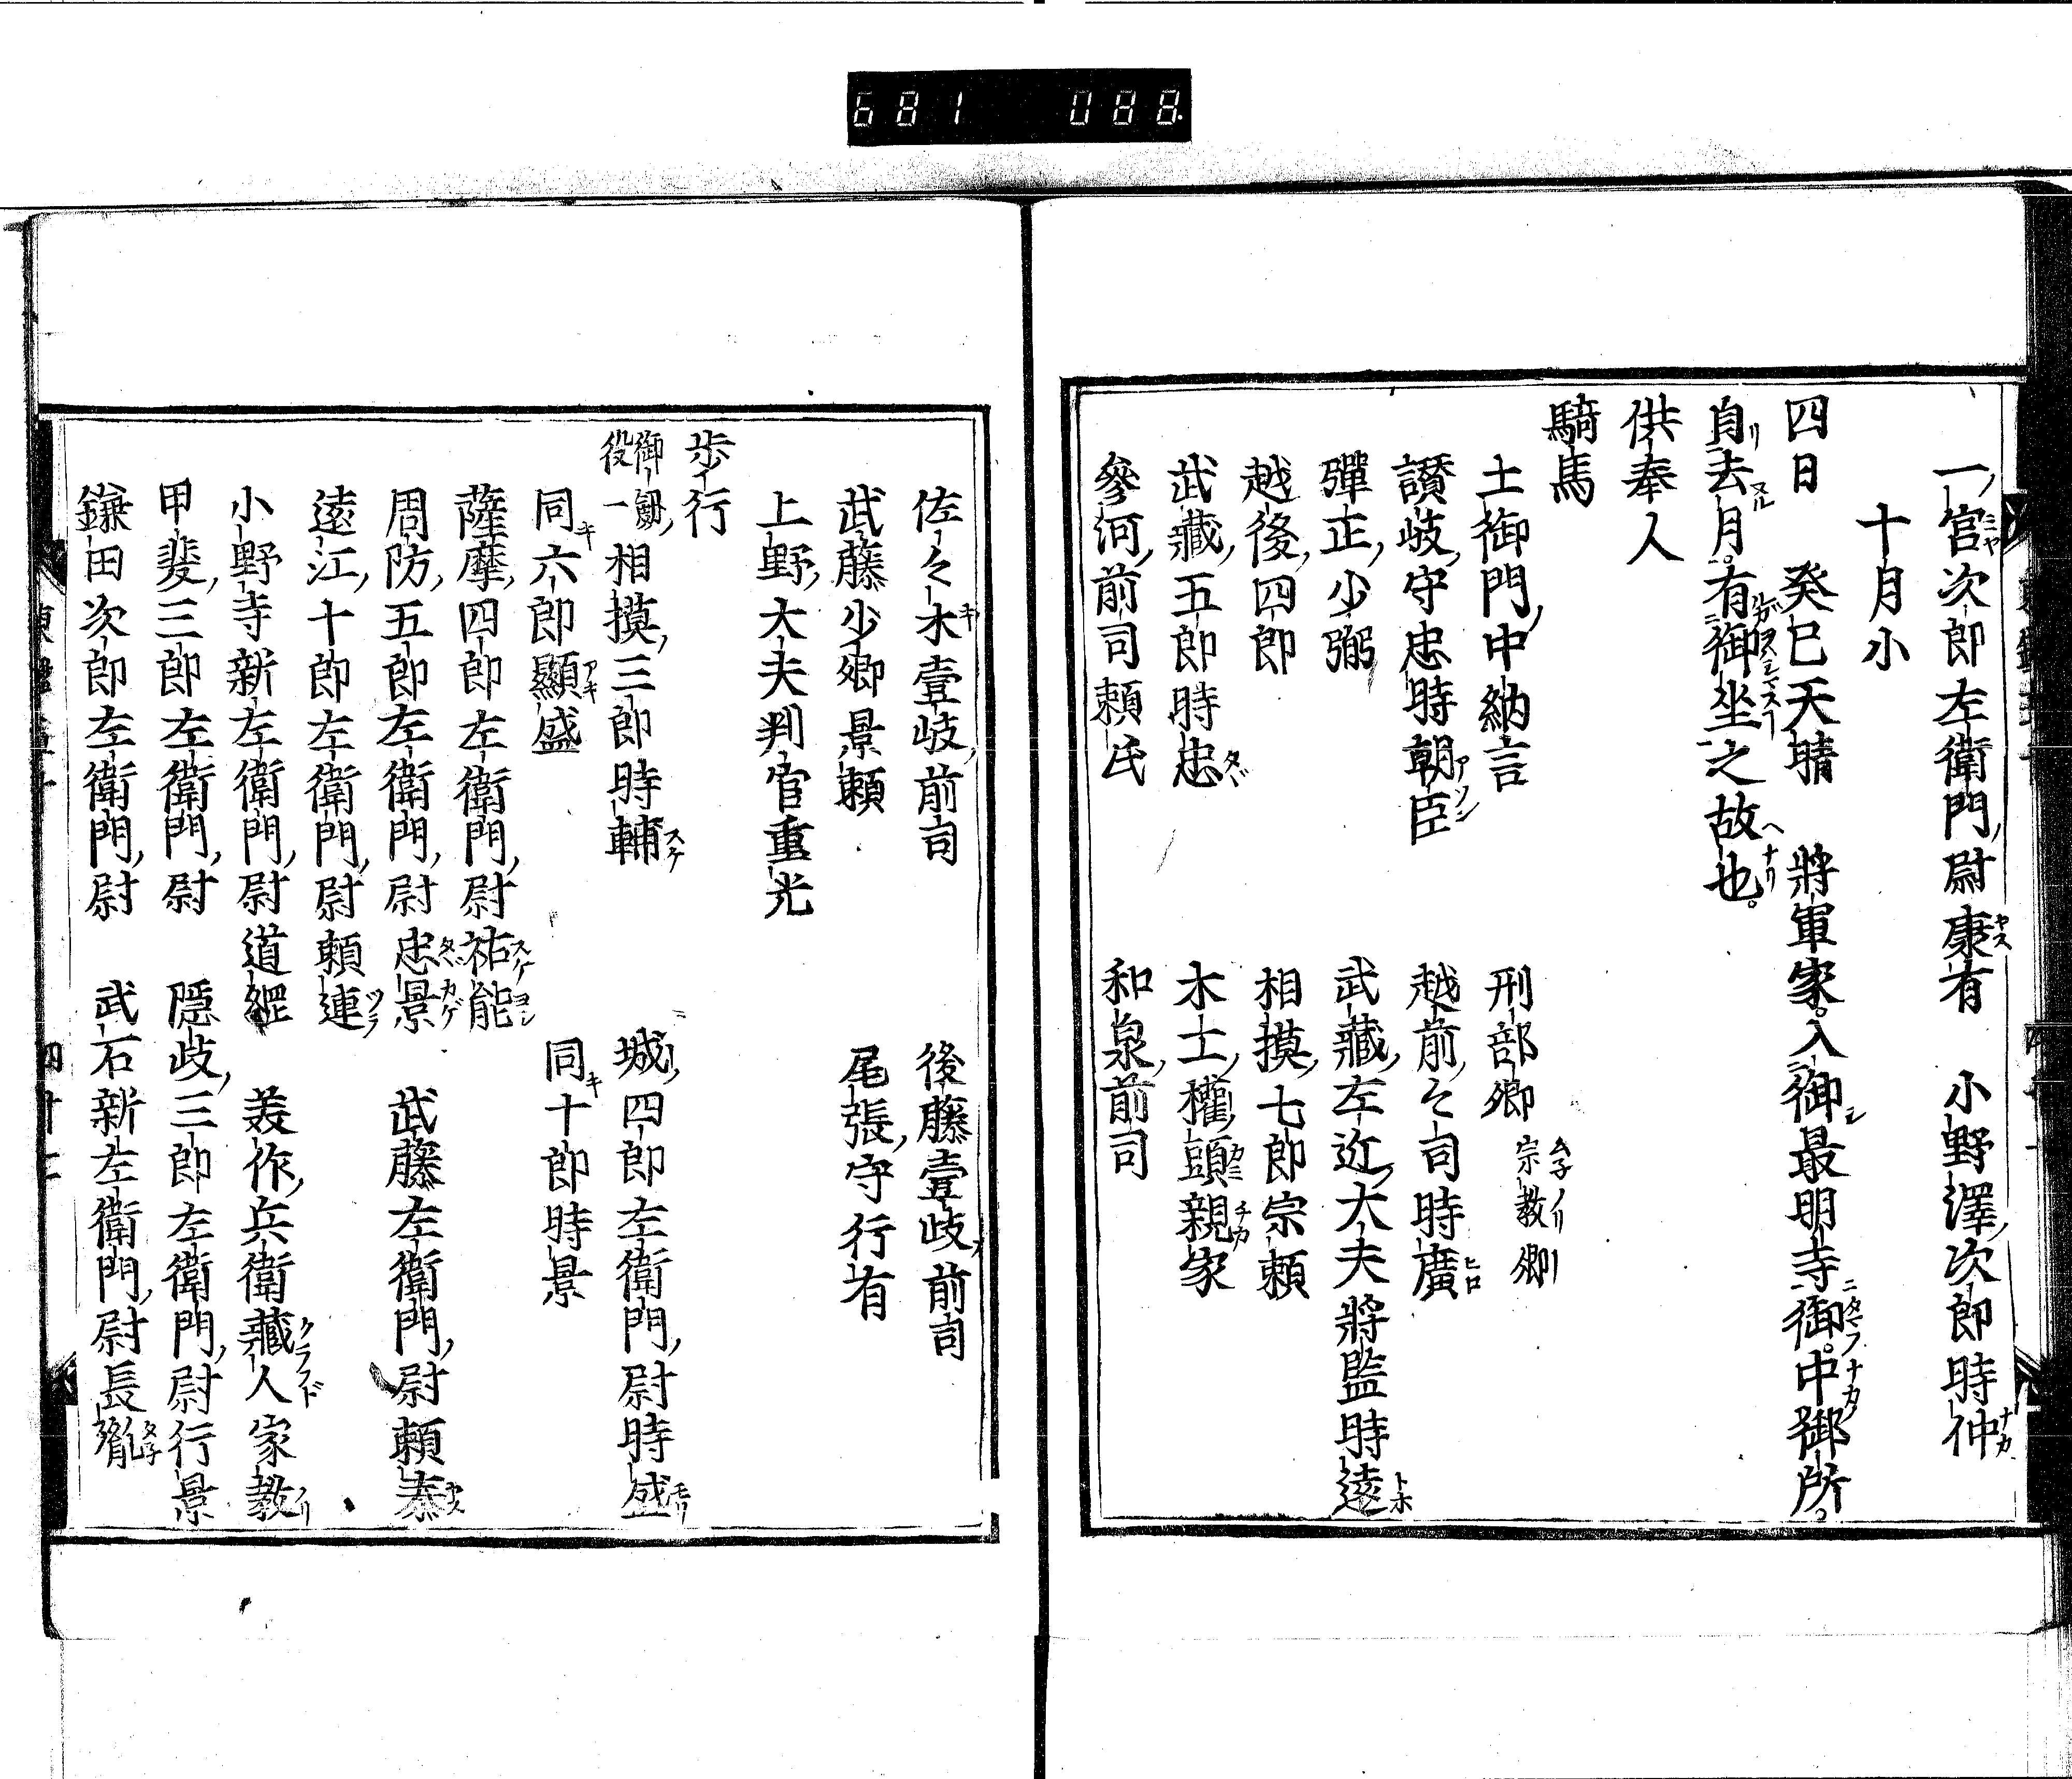 681 088
一宮次郎左衛門尉康有 小野澤次郎時仲
十月小
四日 癸巳天晴 將軍家入御最明寺御中御所
自去月有御坐之故也
供奉人
騎馬
土御門中納言 刑部卿宗教卿
讃岐守忠時朝臣 越前々司時廣
彈正少弼 武藏左近大夫將監時遠
越後四郎 相摸七郎宗頼
武藏五郎時忠 木工權頭親家
參河前司頼氏 和泉前司
佐々木壹岐前司 後藤壹岐前司
武藤少卿景頼 尾張守行有
上野大夫判官重光
歩行
御劔役一相摸三郎時輔 城四郎左衛門尉時盛
同六郎顯盛 同十郎時景
薩摩四郎左衛門尉祐能
周防五郎左衛門尉忠景 武藤左衛門尉頼泰
遠江十郎左衛門尉頼連
小野寺新左衛門尉道經 美作兵衛藏人家教
甲斐三郎左衛門尉 隱岐三郎左衛門尉行景
鎌田次郎左衛門尉 武石新左衛門尉長胤